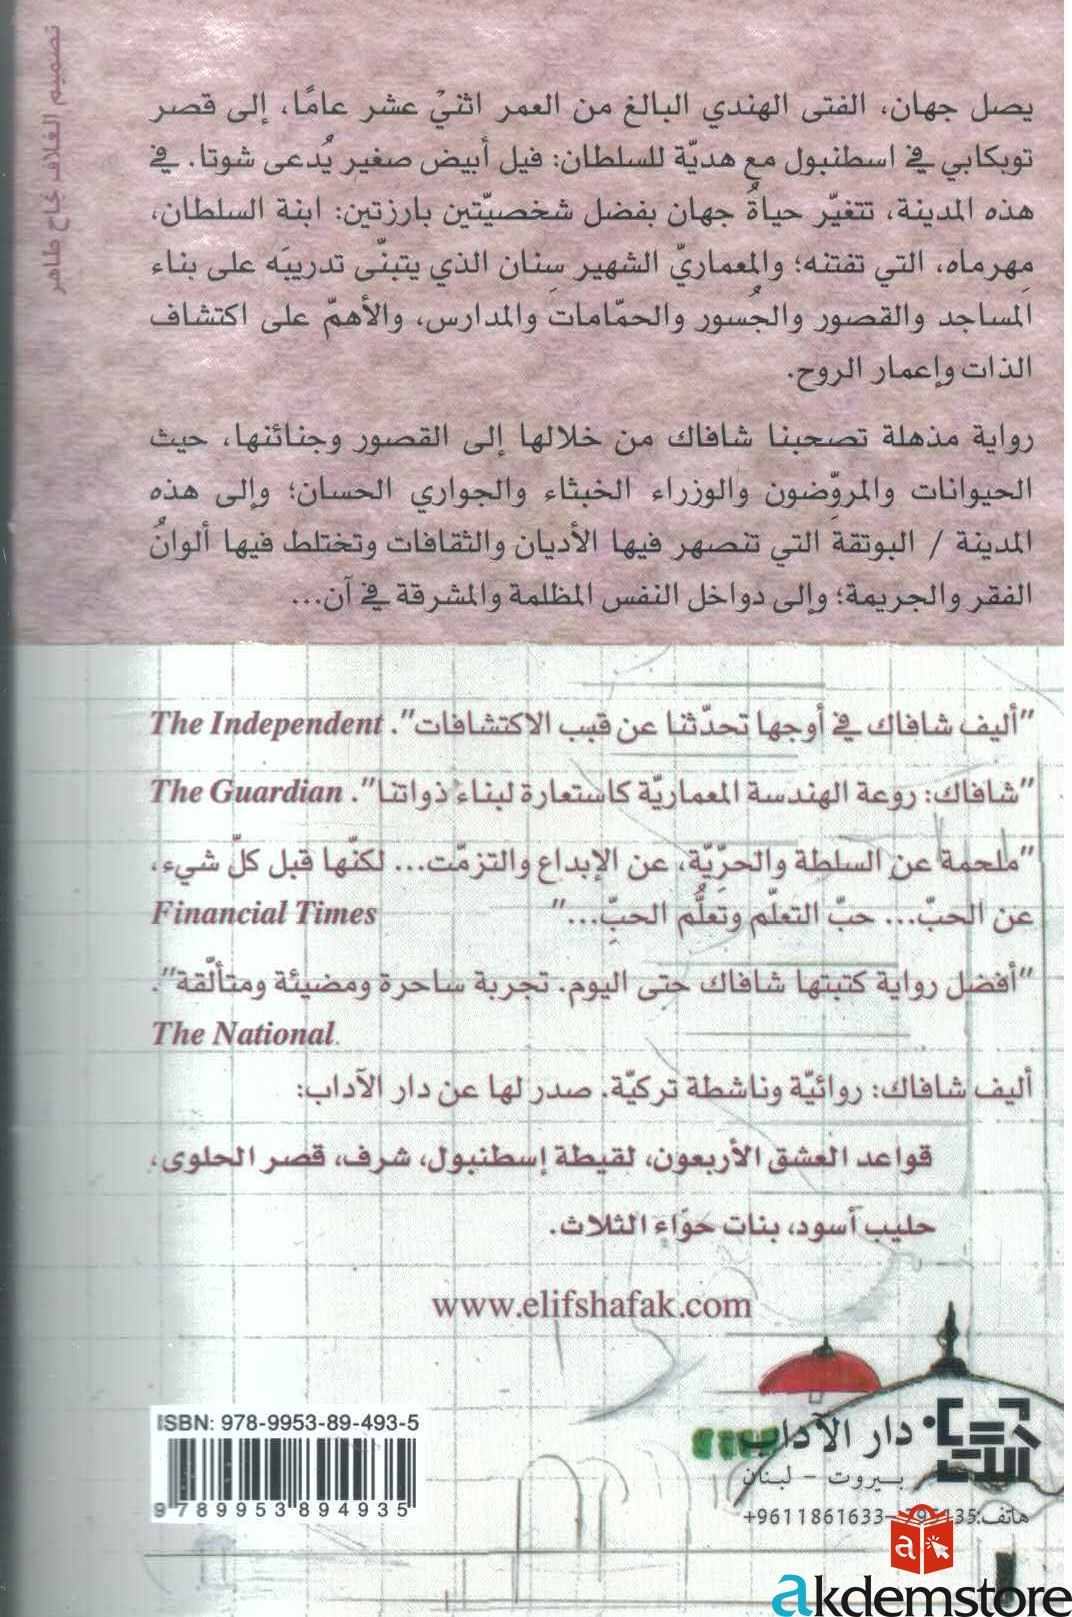 يصل جهان، الفتى الهندي البالغ من العمر اثنيْ عشر عامًا، إلى قصر
توبكابي في اسطنبول مع هديّة للسلطان: فيل أبيض صغير يُدعى شوتا. في
هذه المدينة، تتغيّر حياةُ جهان بفضل شخصيّتين بارزتين: ابنة السلطان،
مِهرماه، التي تفتنه؛ والمعماريّ الشهير سِنان الذي يتبنّى تدريبَه على بناء
المساجد والقصور والجُسور والحمّامات والمدارس، والأهمّ على اكتشاف
الذات وإعمار الروح.
رواية مذهلة تصحبنا شافاك من خلالها إلى القصور وجنائنها، حيث
الحيوانات والمروِّضون والوزراء الخبثاء والجواري الحسان؛ وإلى هذه
المدينة / البوتقة التي تنصهر فيها الأديان والثقافات وتختلط فيها ألوانُ
الفقر والجريمة؛ وإلى دواخل النفس المظلمة والمشرقة في آن...
"أليف شافاك في أوجها تحدّثنا عن قبب الاكتشافات". The Independent
"شافاك: روعة الهندسة المعماريّة كاستعارة لبناء ذواتنا". The Guardian
"ملحمة عن السلطة والحرّيّة، عن الإبداع والتزمّت... لكنّها قبل كلّ شيء،
عن الحبّ... حبّ التعلّم وتعلُّم الحبِّ..." Financial Times
"أفضل رواية كتبتها شافاك حتى اليوم. تجربة ساحرة ومضيئة ومتألّقة".
The National.
أليف شافاك: روائيّة وناشطة تركيّة. صدر لها عن دار الآداب:
قواعد العشق الأربعون، لقيطة إسطنبول، شرف، قصر الحلوى،
حليب أسود، بنات حوّاء الثلاث.
www.elifshafak.com
ISBN: 978-9953-89-493-5
9 789953 894935
دار الآداب
بيروت - لبنان
هاتف: +9611861633
akdemstore
تصميم الغلاف نجاح طاهر